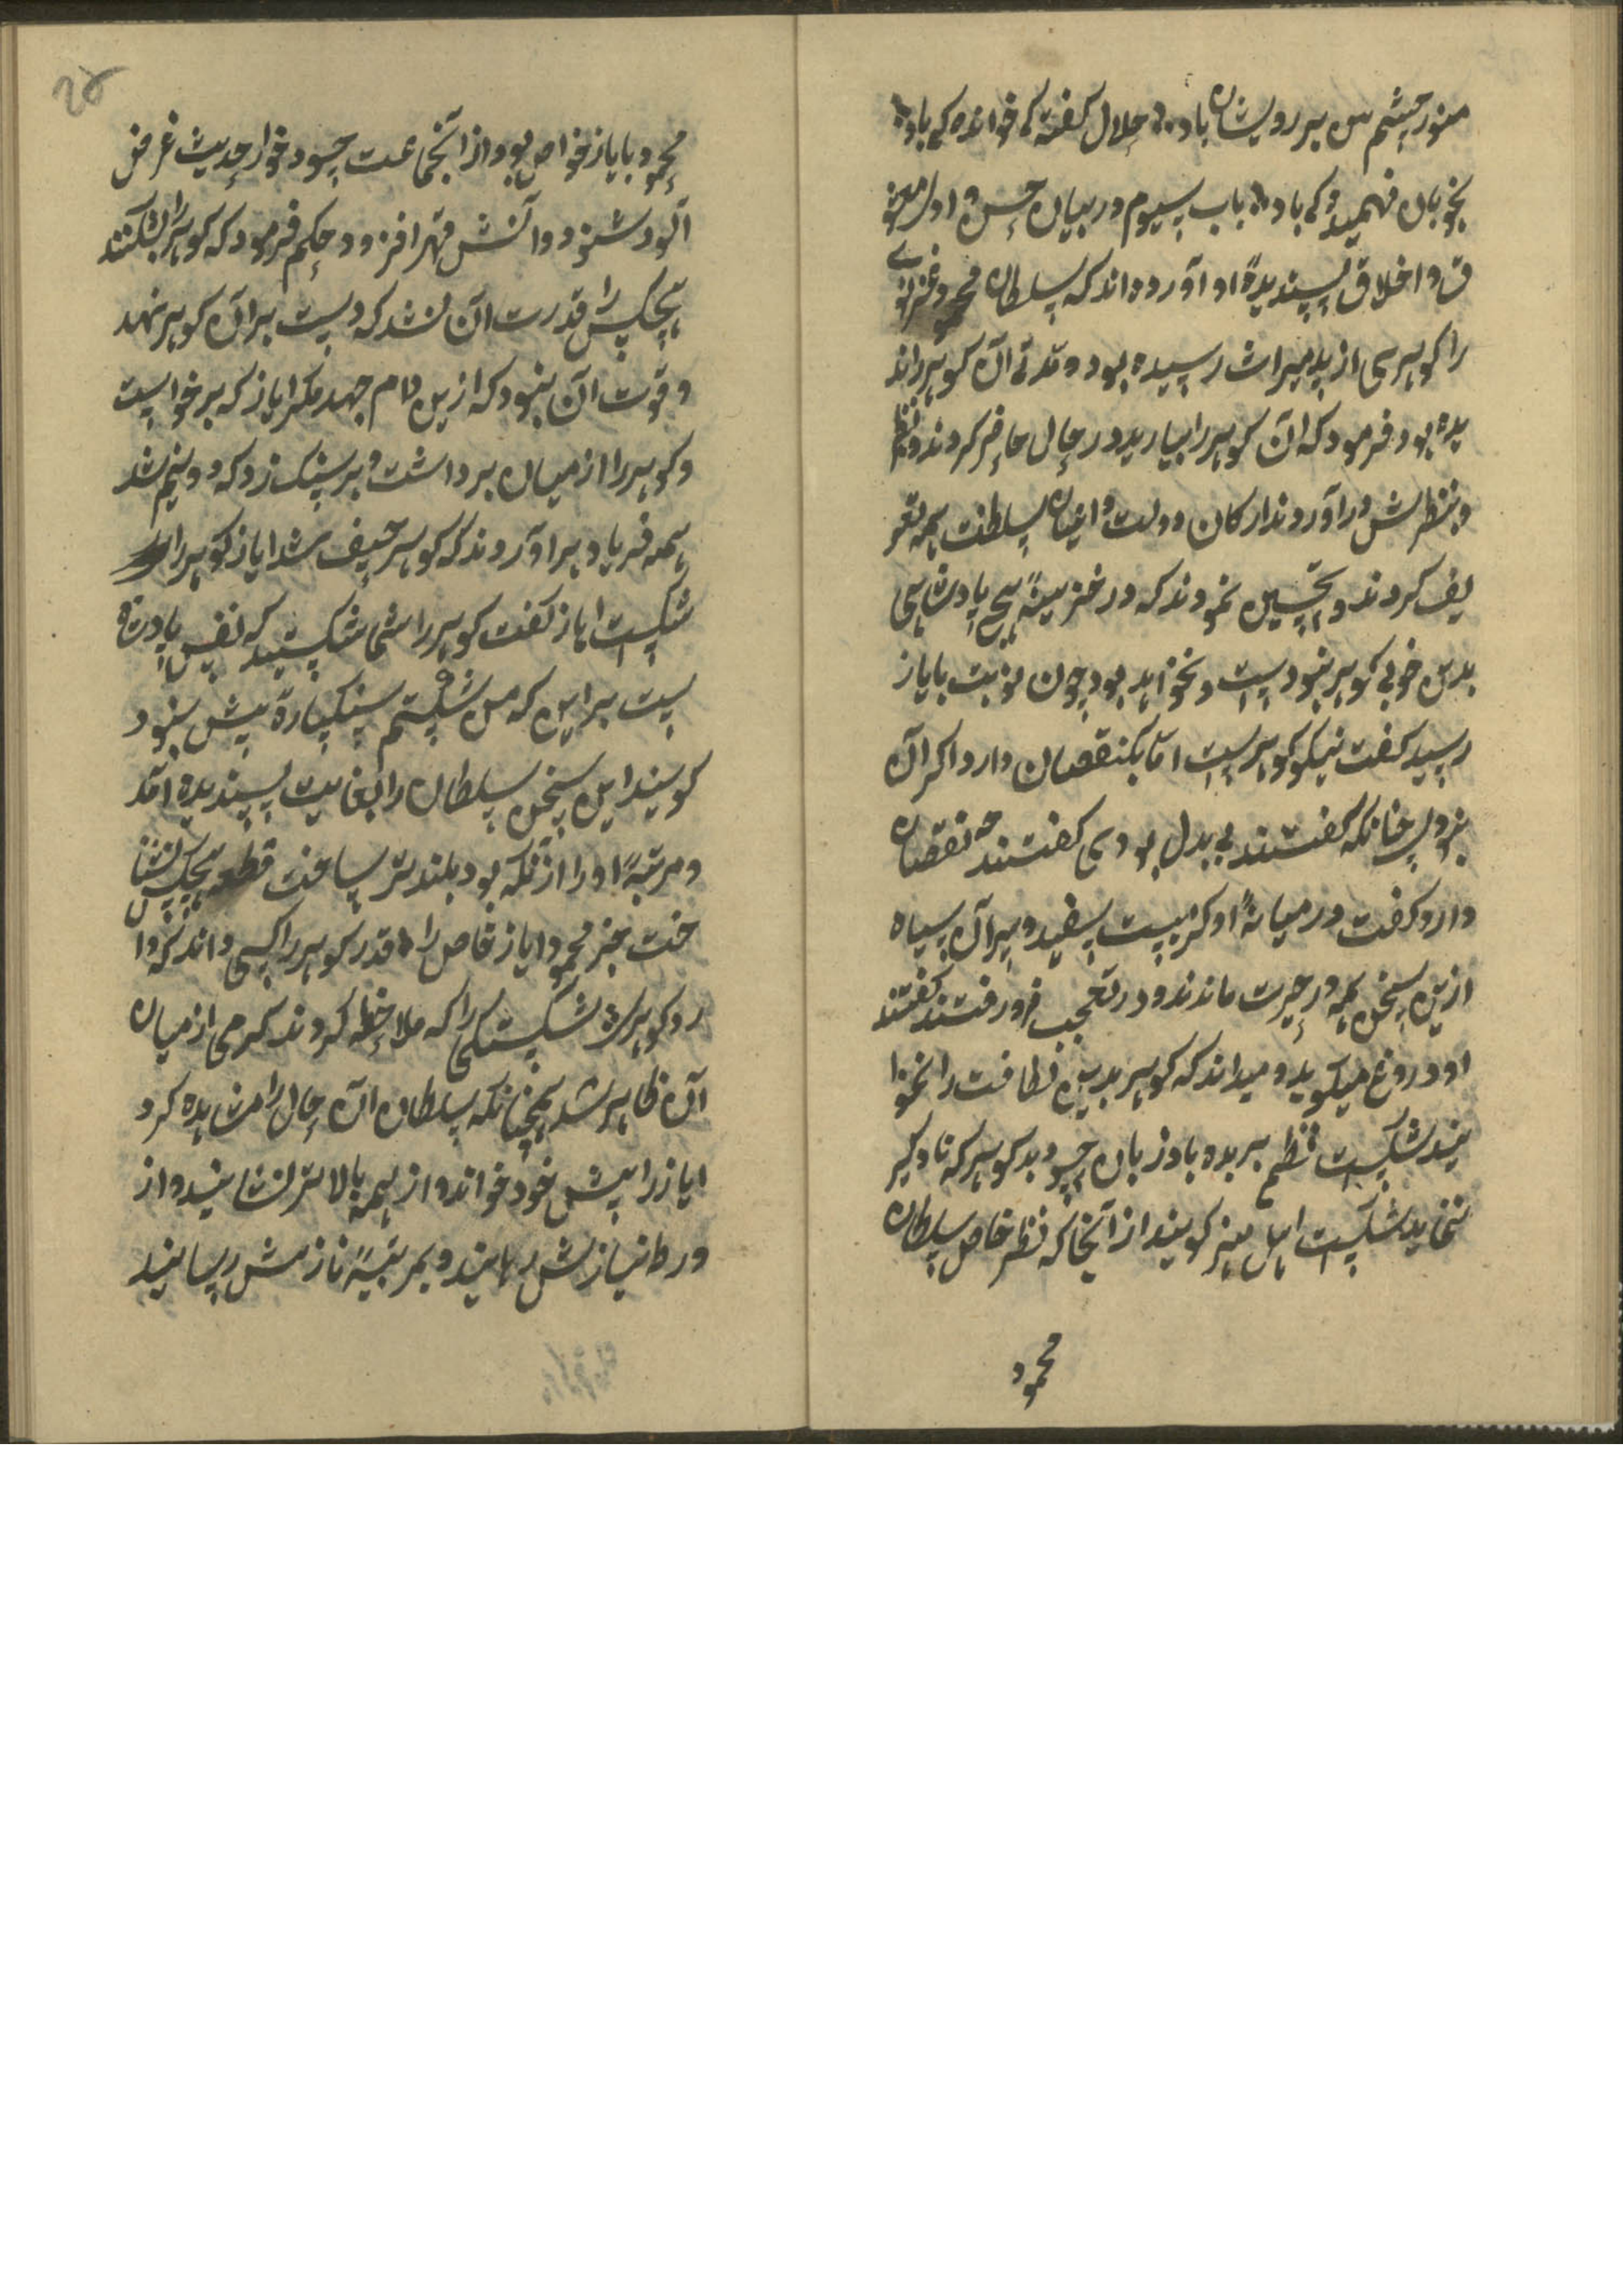 منور چشم من بر روی شان باد؞ جلال گفته کی خوانده کی باد؞
بخوبان فهمید کی باد؞ باب سیوم در بیان حسن و اول معشو
ق و اخلاق پسندیدۀ او آورده اند که سلطان محمود غزنوی
را کوهری از پدر میراث رسیده بود و مدتی آن کوهر را ند
یده بود فرمود که آن کوهر را بیارید در حال حاضر کردند و نظم
و بنظرش در آوردند ارکان دولت و اعیان سلطنت همه تعر
یف کردند و تحسین نمودند که در خزینۀ هیچ پادشاهی
بدین خوبی کوهر نبودست و نخواهد بود چون نوبت بایاز
رسید گفت نیکو کوهریست اما یک نقصان دارد اگر آن
نبودی چنانکه گفتند بی بدل بودی گفتند چه نقصان
دارد گفت در میانۀ او کرمیست سفید و سر آن سیاه
ازین سخن همه در حیرت ماندند و در تعجب فرو رفتند گفتند
او دروغ میگوید و میداند که کوهر بدین لطافت را نخوا
هند شکست نظم بریده باد زبان حسود بد کوهر که تا دگر
ننماید شکست اهل هنر گویند از آنجا که نظر خاص سلطان
محمود
۲۵
محمود بایاز خواص بود از آنجماعت حسود خوار حدیث غرض
آلود شنود و آتش قهر افزود حکم فرمود که کوهر را بشکنند
هیچکس را قدرت آن نشد که دست بر آن کوهر نهد
و قوت آن نبود که ازین دام جهد مگر ایاز که برخواست
و کوهر را از میان برداشت و بر سنگ زد که دو نیم شد
همه فریاد بر آوردند که کوهر حیف شد ایاز کوهر را
شکست ایاز گفت کوهر را شما شکستید که نفس پادشا
ست بر این که من شکستم سنگپارۀ بیش نبود
گویند این سخن سلطان را بغایت پسندیده آمد
و مرتبۀ او را از آنکه بود بلندتر ساخت قطعه هیچکس نشنا
خت جز محمود ایاز خاص را؞ قدر کوهر را کسی داند که دا
رد کوهری؞ شکستگی را که ملاحظه کردند کرمی از میان
آن ظاهر شد همچنانکه سلطان آن حال را مشاهده کرد
ایاز را پیش خود خواند و از همه بالاتر نشانید و از
ورطۀ نیازش رهانید و بمرتبۀ نازش رسانید